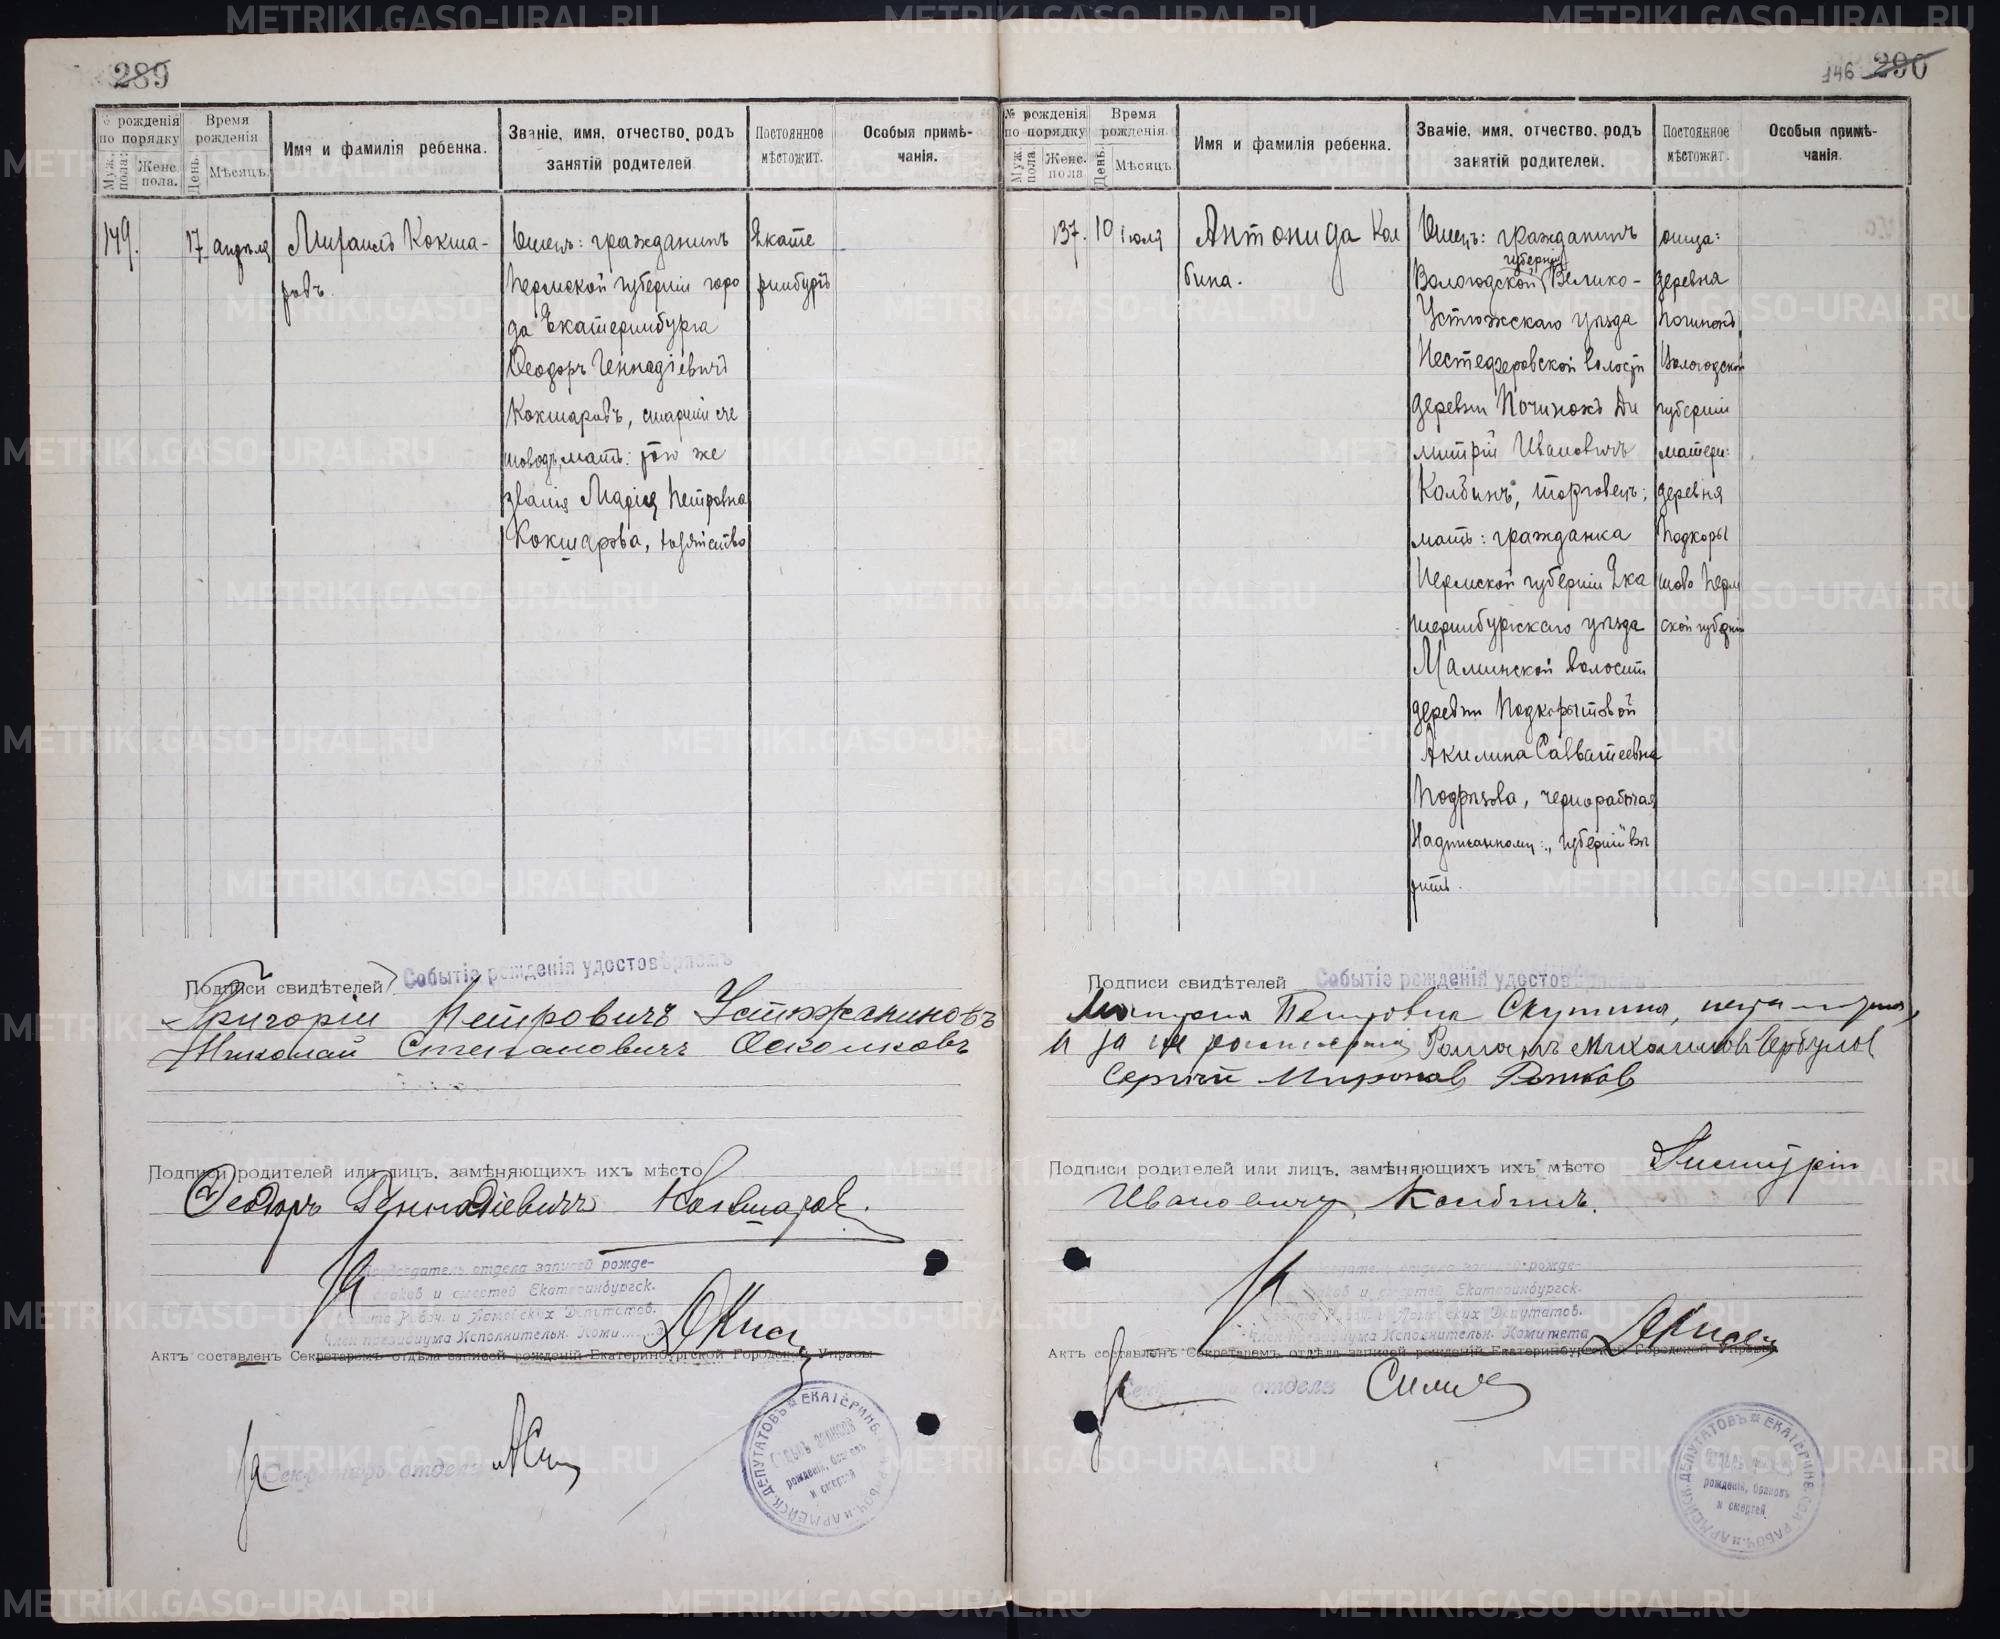 289
№ рожденія по порядку
Муж. пола.
Женс. пола.
Время рожденія
День.
Мѣсяцъ.
Имя и фамилія ребенка.
Званіе, имя, отчество, родъ занятій родителей
Постоянное мѣстожит.
Особыя примѣ-
чанія.
149.
17
апрѣля
Михаилъ Кокша-
ровъ.
Отецъ: гражданинъ
Пермской губерніи горо
да Екатеринбурга
Ѳеодоръ Геннадіевичъ
Кокшаровъ, старшій сче
товодъ, мать: того же
званія Марія Петровна
Кокшарова, хозяйство
Екате
ринбургъ
Подписи свидѣтелей
Событіе рожденія удостовѣряемъ
Григорій Петровичъ Устюжаниновъ
Николай Степановичъ Осколковъ
Подписи родителей или лицъ, замѣняющихъ ихъ мѣсто
Ѳеодоръ Геннадіевичъ Кокшаровъ.
За
Предсѣдатель отдела записей рожде-
браков и смертей Екатеринбургск.
Совета Рабоч. и Армейских Депутатов.
Член президиума Исполнительн. Комитета
Актъ составленъ Секретаремъ отдѣла записей рожденій Екатеринбургской Городской Управы
За Секретарь отдела
ДЕПУТАТОВЪ ЕКАТЕРИНБ. РАБОЧ. И АРМЕЙСК.
рожденія, браковъ
и смертей
146 290
№ рожденія по порядку
Муж. пола.
Женс. пола
Время рожденія.
День.
Мѣсяцъ.
Имя и фамилія ребенка.
Званіе, имя, отчество, родъ занятій родителей.
Постоянное мѣстожит.
Особыя примѣ-
чанія.
137.
10
іюля
Антонида Кол
бина.
Отецъ: гражданинъ
губерніи
Вологодской Велико-
Устюжскаго уѣзда
Нестеферовской волости
деревни Починокъ Ди
митрій Ивановичъ
Колбинъ, торговецъ;
мать: гражданка
Пермской губерніи Ека
теринбургскаго уѣзда
Маминской волости
деревни Подкорытовой
Акилина Савватеевна
Подрѣзова, чернорабочая
Надписанному: "губерніи" вѣ
рить.
отца:
деревня
Починокъ
Вологодской
губерніи
матери:
деревня
Подкоры
тово Перм
ской губерніи
Подписи свидѣтелей
Событіе рожденія удостовѣряемъ
Петровна Скутина,
и за Романъ
Сергѣй Миронов
Подписи родителей или лицъ, замѣняющихъ ихъ мѣсто Дмитрій
Ивановичъ Колбинъ.
За
Предсѣдатель отдела записей рожде-
браков и смертей Екатеринбургск.
Совета Рабоч. и Армейских Депутатов.
Член президиума Исполнительн. Комитета
Актъ составленъ Секретаремъ отдѣла записей рожденій Екатеринбургской Городской Управы
За Секретарь отдела
ДЕПУТАТОВЪ ЕКАТЕРИНБ. РАБОЧ. И АРМЕЙСК.
рожденія, браковъ
и смертей
METRIKI.GASO-URAL.RU